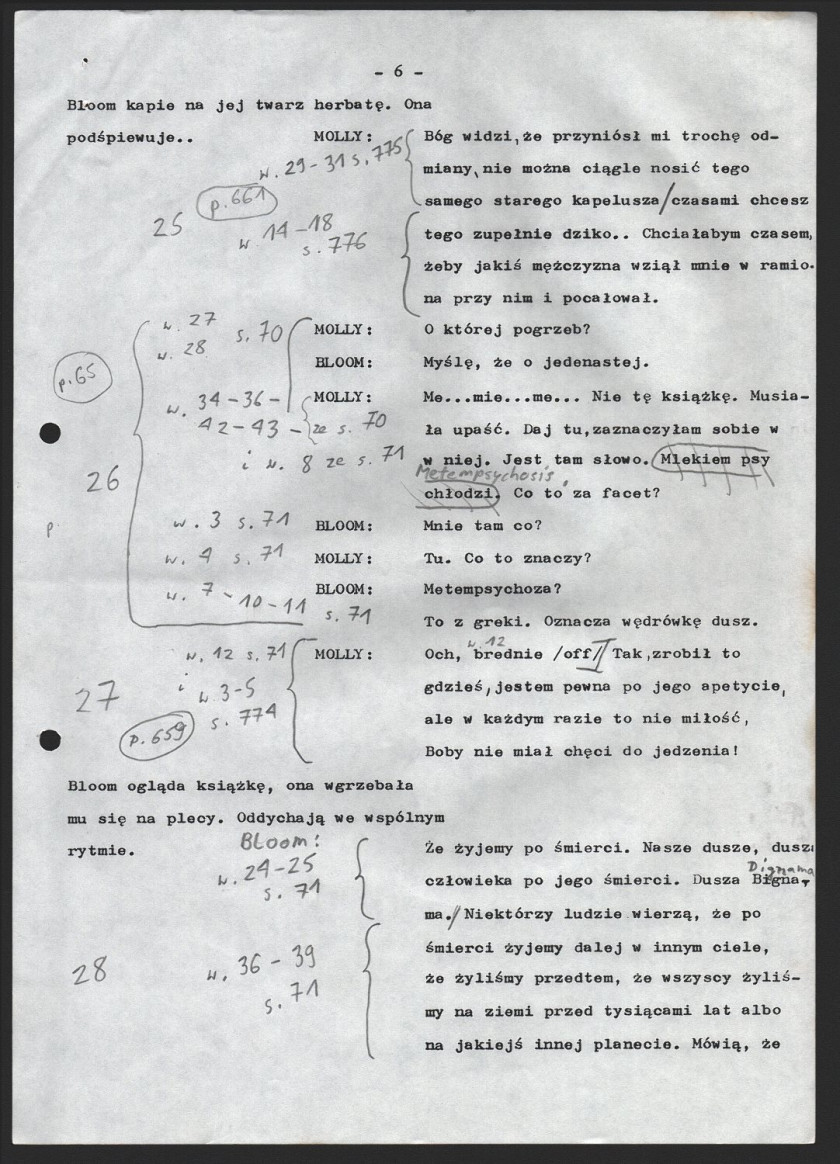 - 6 -
Bloom kapie na jej twarz herbatę. Ona
podśpiewuje.. MOLLY: Bóg widzi, że przyniósł mi trochę od-
w. 29-31 s. 775 miany, nie można ciągle nosić tego
p. 661 samego starego kapelusza/czasami chcesz
25 w 14-18 tego zupełnie dziko.. Chciałabym czasem,
s. 776 żeby jakiś mężczyzna wziął mnie w ramio-
na przy nim i pocałował.
w. 27 s. 70 MOLLY: O której pogrzeb?
w. 28 BLOOM: Myślę, że o jedenastej.
p. 65 w. 34-36- MOLLY: Me...mie...me... Nie tę książkę. Musia-
42-43 - ze s. 70 ła upaść. Daj tu, zaznaczyłam sobie w
26 i w. 8 ze s. 71 w niej. Jest tam słowo. Mlekiem psy
Metempsychosis
chłodzi. Co to za facet?
p. w. 3 s. 71 BLOOM: Mnie tam co?
w. 4 s. 71 MOLLY: Tu. Co to znaczy?
w. 7-10-11 BLOOM: Metempsychoza?
s. 71 To z greki. Oznacza wędrówkę dusz.
w. 12
w. 12 s. 71 MOLLY: Och, brednie /off/ Tak, zrobił to
27 i w 3-5 gdzieś, jestem pewna po jego apetycie,
p. 659 s. 774 ale w każdym razie to nie miłość,
Boby nie miał chęci do jedzenia!
Bloom ogląda książkę, ona wgrzebała
mu się na plecy. Oddychają we wspólnym
rytmie. Bloom: Że żyjemy po śmierci. Nasze dusze, dusza
Dignama
w. 24-25 człowieka po jego śmierci. Dusza Bigna-
s. 71 ma./ Niektórzy ludzie wierzą, że po
28 w. 36-39 śmierci żyjemy dalej w innym ciele,
s. 71 że żyliśmy przedtem, że wszyscy żyliś-
my na ziemi przed tysiącami lat albo
na jakiejś innej planecie. Mówią, że